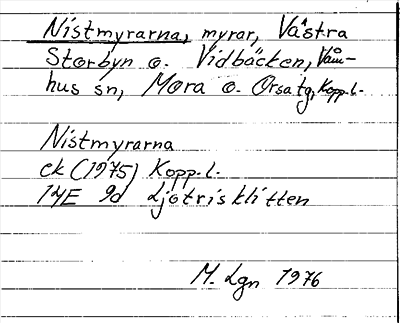 Nistmyrarna, myrar, Västra
Storbyn o. Vidbäcken, Våm-
hus sn, Mora o. Orsa tg, Kopp.l.
Nistmyrarna
ek (1975) Kopp.l.
14E 9d Ljotrisklitten
M. Lgn 1976